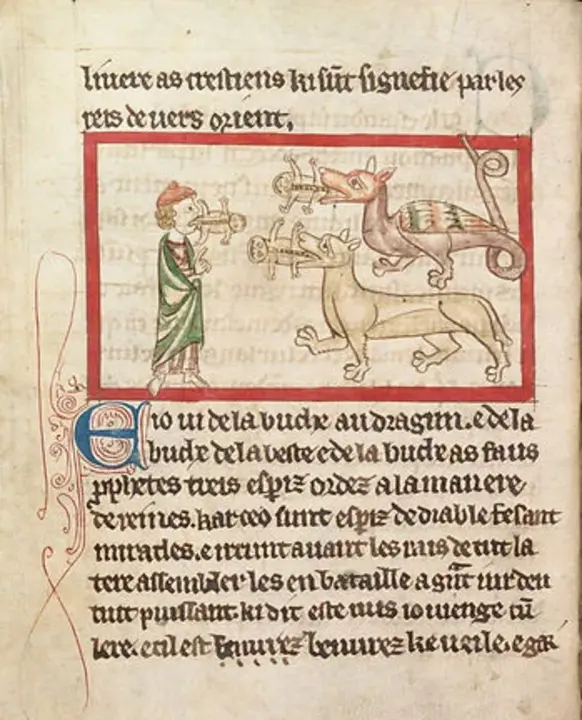 liuere as crestiens ki sũt signefie par les
reis de uers orient.
E io ui de la buche au dragun. e de la
buche de la beste e de la buche as faus
prophetes treis espiz ordez a la manere
de reines. kar ceo sunt espiz de diable fesant
miracles. e irrunt auant les rais de tut la
tere assembler les en bataille a gñt iur deu
tut puissant. ki dit este uus io uienge cũ
lere. e cil est benurez benurez ke ueile. e gar